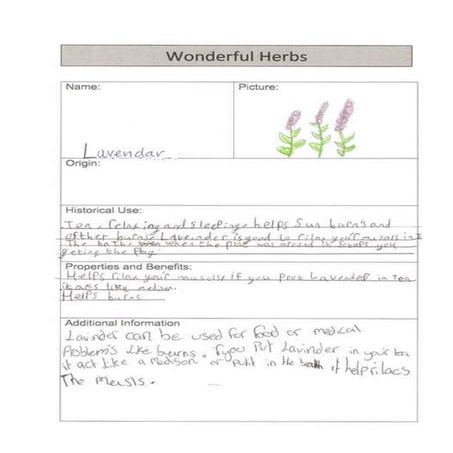 Wonderful Herbs
Name:
Picture:
Lavendar
Origin:
Historical Use:
Tea. relaxing and sleeping. helps Sun burns and
other burns. Lavender is good to relax your
the baths when the plag was around to you
getting the Plag
Properties and Benefits:
Helps relax your if you poot Lavender in Tea
it acts like
Helps burns
Additional Information
Lavinder can be used for food or medical
Problem's like burns. if you Put Lavinder in your tea
it act like a or Putit in the bath it help rilacs
The